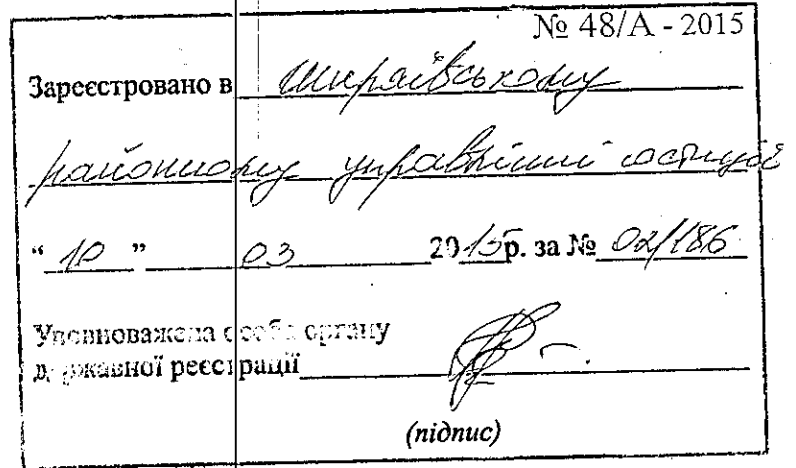 № 48/А - 2015
Зареєстровано в Ширяївському
районному управлінні юстиції
“ 10 ” 03 2015р. за № 02/186
Уповноважена особа органу
державної реєстрації
(підпис)